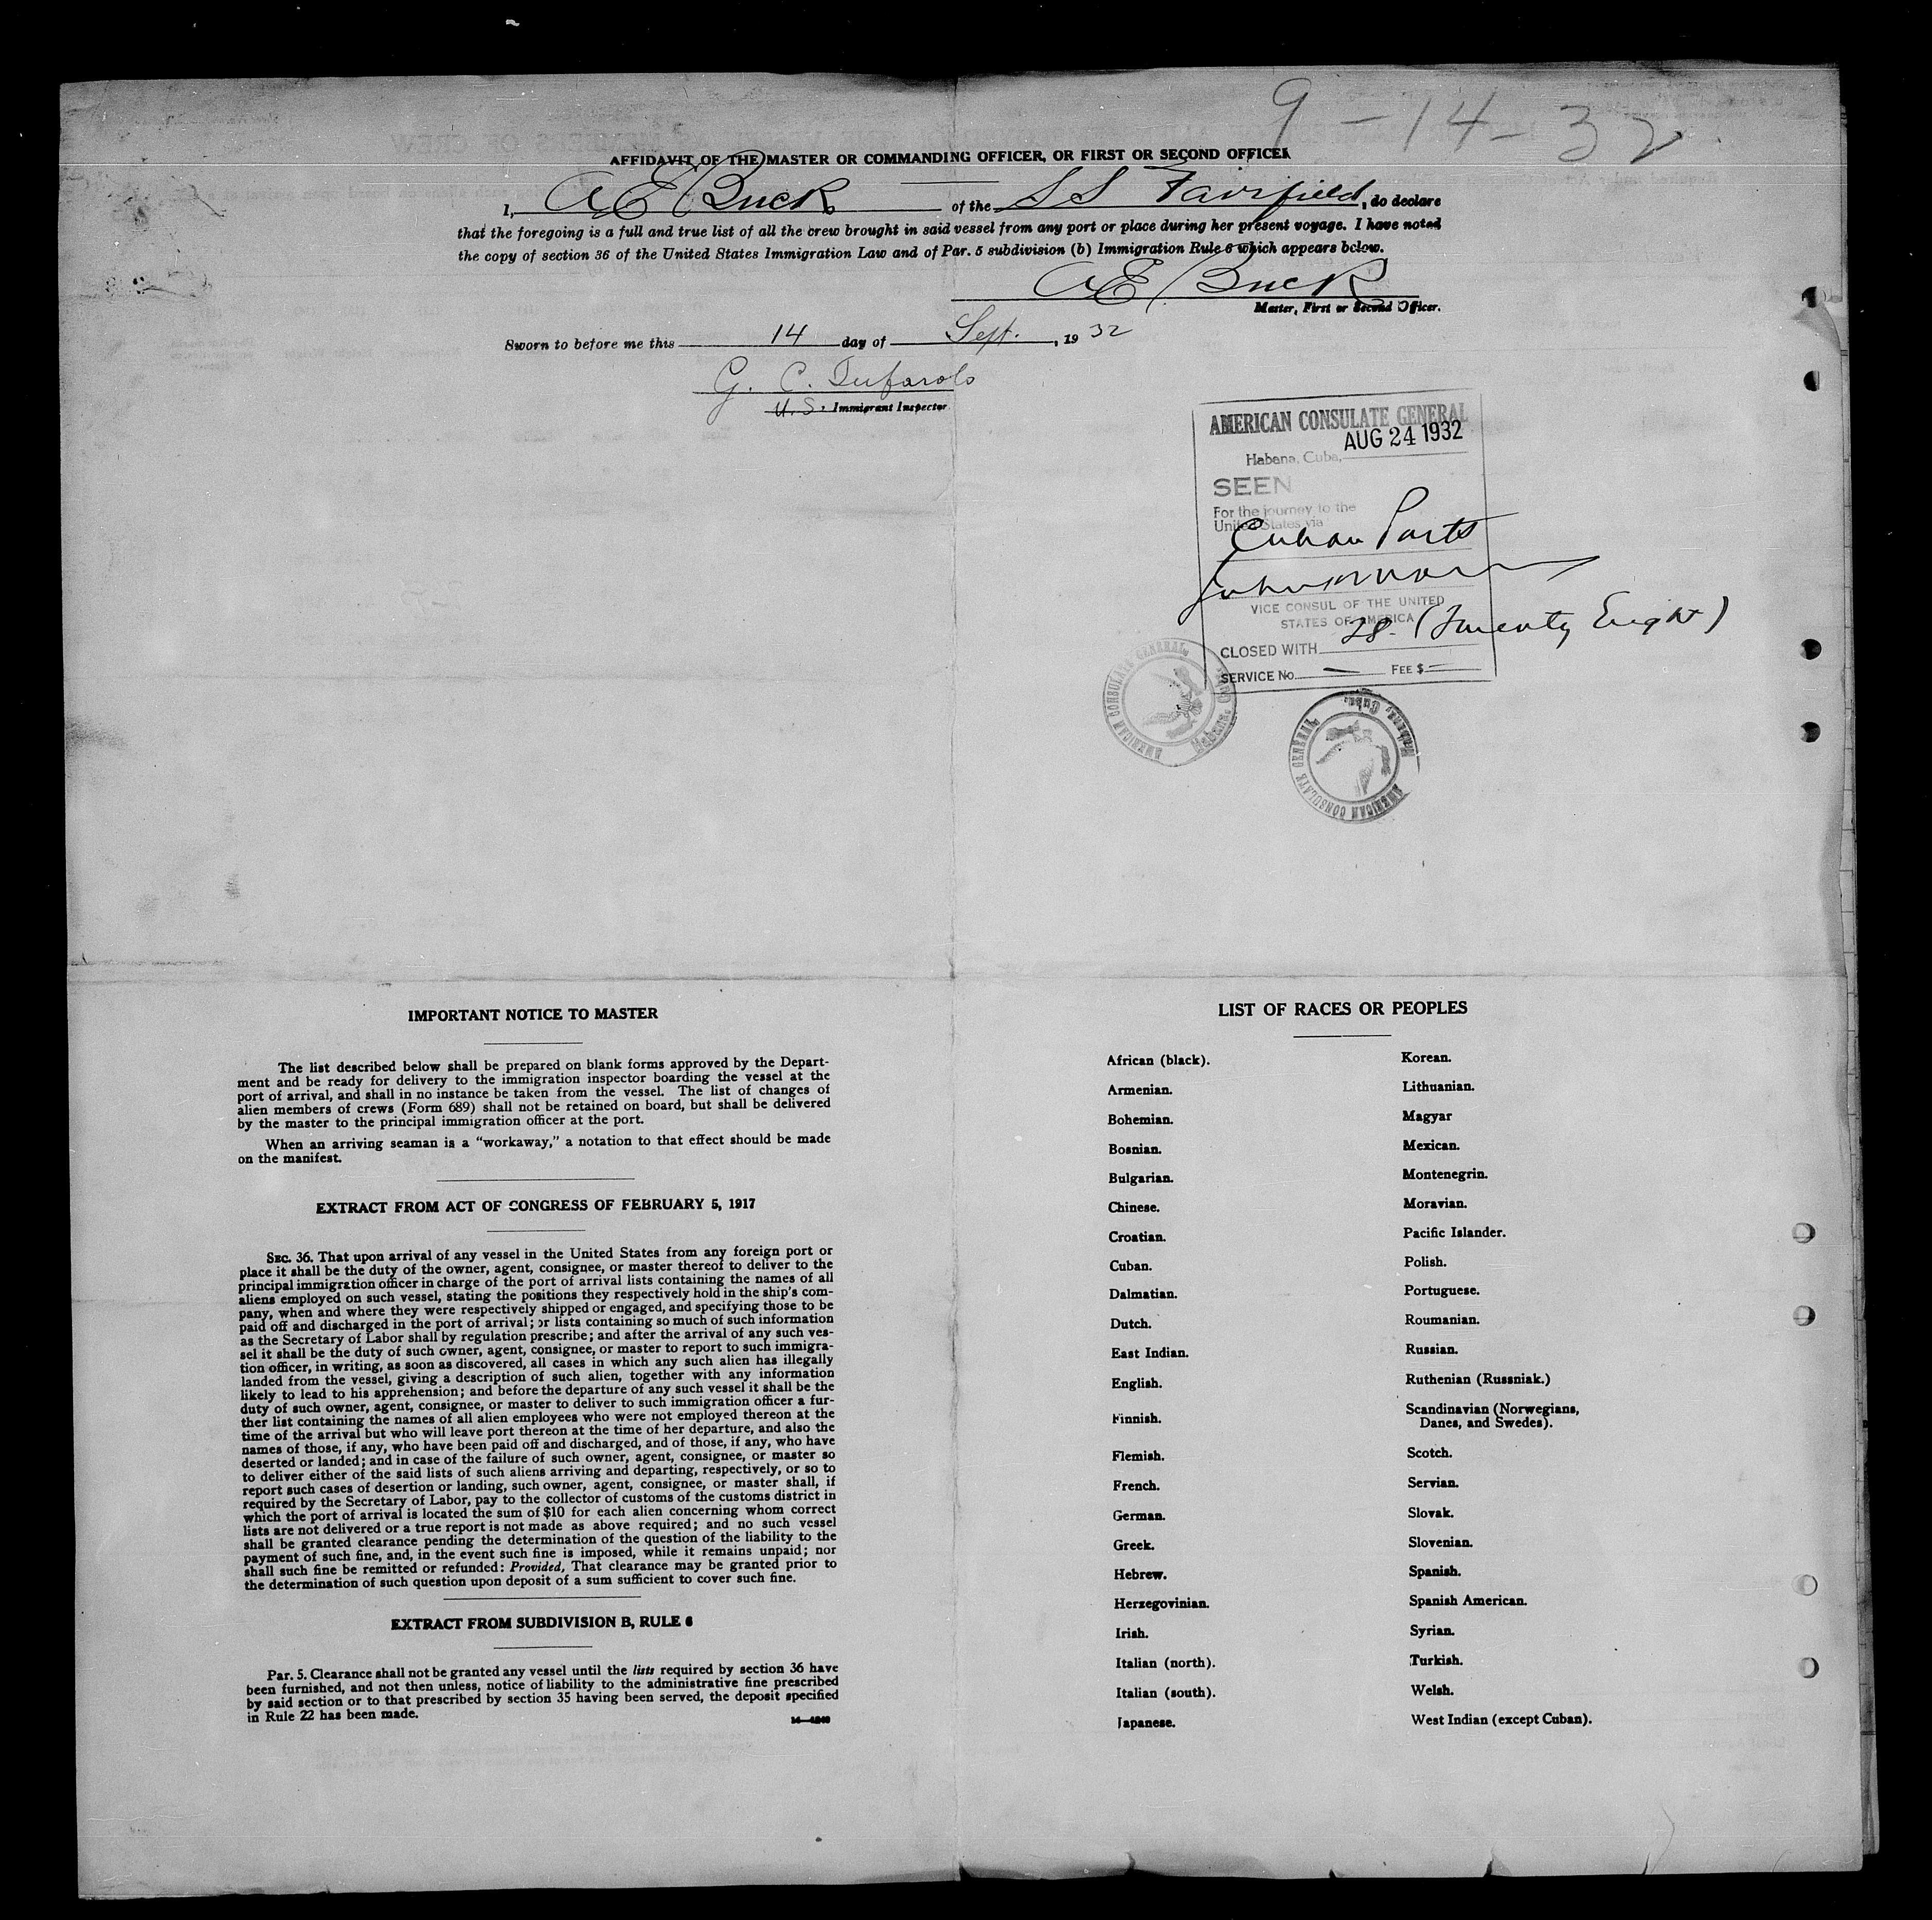 9-14-32
AFFIDAVIT OF THE MASTER OR COMMANDING OFFICER, OR FIRST OR SECOND OFFICER
I, A E Buck of the S S Fairfield, do declare
that the foregoing is a full and true list of all the crew brought in said vessel from any port or place during her present voyage. I have noted
the copy of section 36 of the United States Immigration Law and of Par. 5 subdivision (b) Immigration Rule 6 which appears below.
A E Buck
Master, First or Second Officer.
Sworn to before me this 14 day of Sept., 19 32
G. C.
U. S. Immigrant Inspector
AMERICAN CONSULATE GENERAL
AUG 24 1932
Habana, Cuba,
SEEN
For the journey to the
United States via
Cuban Ports
John
VICE CONSUL OF THE UNITED
STATES OF AMERICA
CLOSED WITH 28. (Twenty Eight)
SERVICE No. — FEE $ —
AMERICAN CONSULATE GENERAL. Habana, Cuba.
AMERICAN CONSULATE GENERAL Habana, Cuba.
IMPORTANT NOTICE TO MASTER
The list described below shall be prepared on blank forms approved by the Depart-
ment and be ready for delivery to the immigration inspector boarding the vessel at the
port of arrival, and shall in no instance be taken from the vessel. The list of changes of
alien members of crews (Form 689) shall not be retained on board, but shall be delivered
by the master to the principal immigration officer at the port.
When an arriving seaman is a "workaway," a notation to that effect should be made
on the manifest.
EXTRACT FROM ACT OF CONGRESS OF FEBRUARY 5, 1917
SEC. 36. That upon arrival of any vessel in the United States from any foreign port or
place it shall be the duty of the owner, agent, consignee, or master thereof to deliver to the
principal immigration officer in charge of the port of arrival lists containing the names of all
aliens employed on such vessel, stating the positions they respectively hold in the ship's com-
pany, when and where they were respectively shipped or engaged, and specifying those to be
paid off and discharged in the port of arrival; or lists containing so much of such information
as the Secretary of Labor shall by regulation prescribe; and after the arrival of any such ves-
sel it shall be the duty of such owner, agent, consignee, or master to report to such immigra-
tion officer, in writing, as soon as discovered, all cases in which any such alien has illegally
landed from the vessel, giving a description of such alien, together with any information
likely to lead to his apprehension; and before the departure of any such vessel it shall be the
duty of such owner, agent, consignee, or master to deliver to such immigration officer a fur-
ther list containing the names of all alien employees who were not employed thereon at the
time of the arrival but who will leave port thereon at the time of her departure, and also the
names of those, if any, who have been paid off and discharged, and of those, if any, who have
deserted or landed; and in case of the failure of such owner, agent, consignee, or master so
to deliver either of the said lists of such aliens arriving and departing, respectively, or so to
report such cases of desertion or landing, such owner, agent, consignee, or master shall, if
required by the Secretary of Labor, pay to the collector of customs of the customs district in
which the port of arrival is located the sum of $10 for each alien concerning whom correct
lists are not delivered or a true report is not made as above required; and no such vessel
shall be granted clearance pending the determination of the question of the liability to the
payment of such fine, and, in the event such fine is imposed, while it remains unpaid; nor
shall such fine be remitted or refunded: Provided, That clearance may be granted prior to
the determination of such question upon deposit of a sum sufficient to cover such fine.
EXTRACT FROM SUBDIVISION B, RULE 6
Par. 5. Clearance shall not be granted any vessel until the lists required by section 36 have
been furnished, and not then unless, notice of liability to the administrative fine prescribed
by said section or to that prescribed by section 35 having been served, the deposit specified
in Rule 22 has been made.
LIST OF RACES OR PEOPLES
African (black).
Armenian.
Bohemian.
Bosnian.
Bulgarian.
Chinese.
Croatian.
Cuban.
Dalmatian.
Dutch.
East Indian.
English.
Finnish.
Flemish.
French.
German.
Greek.
Hebrew.
Herzegovinian.
Irish.
Italian (north).
Italian (south).
Japanese.
Korean.
Lithuanian.
Magyar
Mexican.
Montenegrin.
Moravian.
Pacific Islander.
Polish.
Portuguese.
Roumanian.
Russian.
Ruthenian (Russniak.)
Scandinavian (Norwegians,
Danes, and Swedes).
Scotch.
Servian.
Slovak.
Slovenian.
Spanish.
Spanish American.
Syrian.
Turkish.
Welsh.
West Indian (except Cuban).